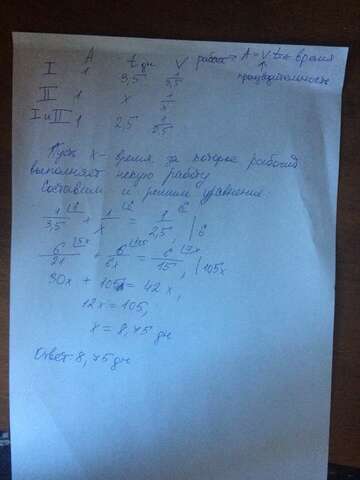 A t дн V работа = A = V·t ← время
I 1 3,5 1/3,5 производительность
II 1 x 1/x
I и II 1 2,5 1/2,5
Пусть x - время за которое рабочий
выполняет некую работу
Составим и решим уравнение:
1/3,5 + 1/x = 1/2,5 | 6
6/21 + 6/6x = 6/15, | 105x
30x + 105 = 42x,
12x = 105,
x = 8,75 дн
Ответ: 8,75 дн